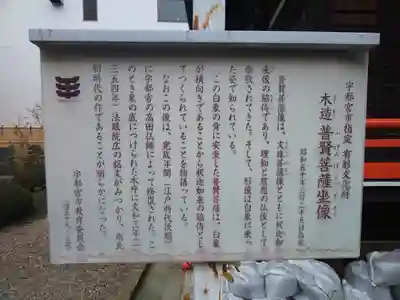 宇都宮市指定 有形文化財
木造 普賢菩薩坐像
昭和五十年三月二十五日指定
普賢菩薩像は、文珠菩薩像とともに釈迦如
来像の脇侍であり、理知と慈悲の仏像として
崇敬されてきた。そして、形像は白象に乗っ
た姿で知られている。
この白象の背に安坐した普賢菩薩は、白象
が横向きであることから釈迦如来の脇侍とし
てつくられていることを物語っている。
なおこの像は、寛政年間(江戸時代後期)
に宇都宮の高田仏師によって修復された。こ
のとき象の底につけられた木片に文和三年(一
三五四年)法眼院広の銘文がみつかり、南北
朝時代の作であることが明らかになった。
宇都宮市教育委員会